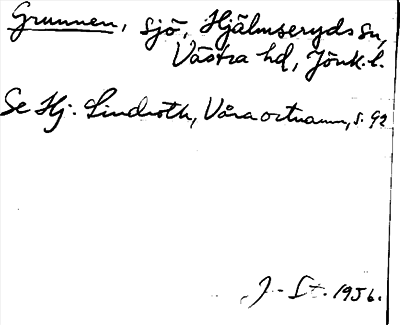 Grunnen, sjö, Hjälmseryds sn,
Västra hd, Jönk. l.
Se Hj. Lindroth, Våra ortnamn, s. 92
J-St. 1956.